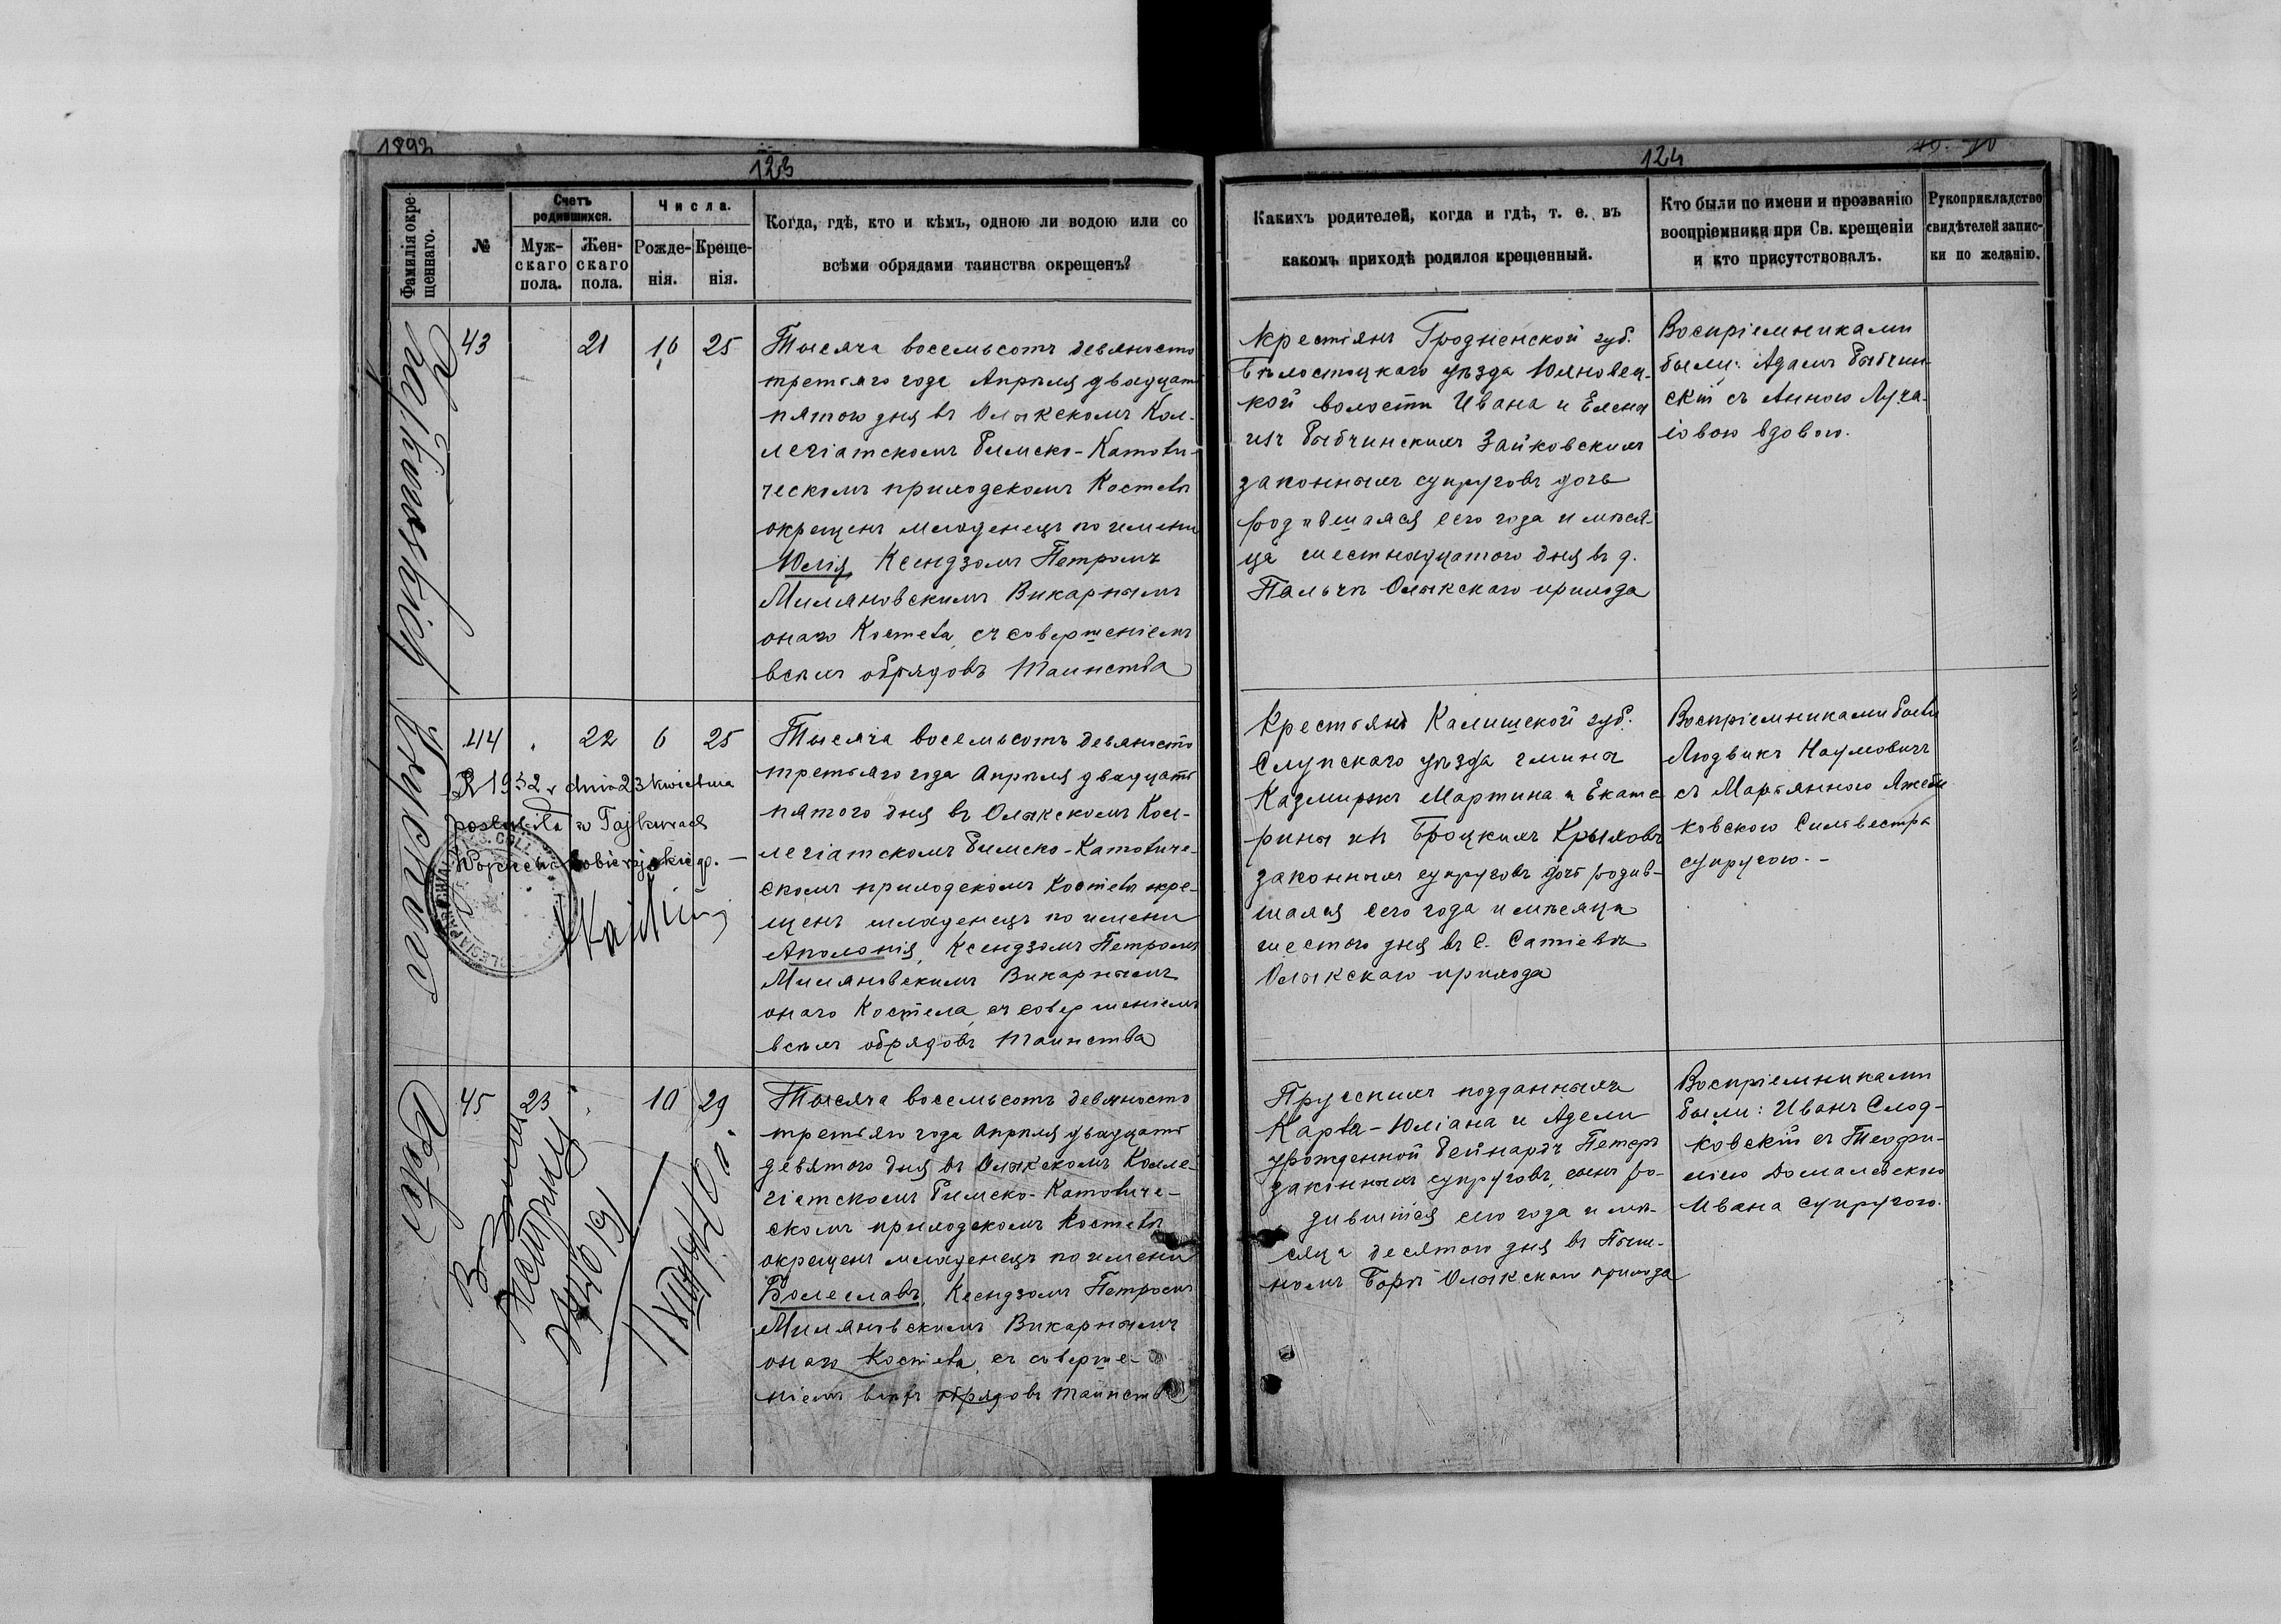 1893
123
Фамилія окре-
щеннаго.
№
Счетъ
родившихся.
Муж-
скаго
пола.
Жен-
скаго
пола.
Числа.
Рожде-
нія.
Креще-
нія.
Когда, гдѣ, кто и кѣмъ, одною ли водою или со
всѣми обрядами таинства окрещенъ?
43
21
16
25
Тысяча восемьсотъ девяносто
третьяго года Апрѣля двадцать
пятого дня въ Олыкскомъ Кол-
легіатскомъ Римско-Католи-
ческомъ приходскомъ Костелѣ
окрещенъ младенецъ по имени
Юлія, Ксендзомъ Петромъ
Миляновскимъ Викарнымъ
онаго Костела, съ совершеніемъ
всѣхъ обрядовъ Таинства
44
22
6
25
R 1932 dnia 23 kwietnia
poślubiła w Tajkurach
Wojciecha
Тысяча восемьсотъ девяносто
третьяго года Апрѣля двадцать
пятого дня въ Олыкскомъ Кол-
легіатскомъ Римско-Католиче-
скомъ приходскомъ Костелѣ окре-
щенъ младенецъ по имени
Аполонія, Ксендзомъ Петромъ
Миляновскимъ Викарнымъ
онаго Костела, съ совершеніемъ
всѣхъ обрядовъ Таинства
45
23
10
29
Тысяча восемьсотъ девяносто
третьяго года Апрѣля двадцать
девятого дня въ Олыкскомъ Колле-
гіатскомъ Римско-Католиче-
скомъ приходскомъ Костелѣ
окрещенъ младенецъ по имени
Болеславъ, Ксендзомъ Петромъ
Миляновскимъ Викарнымъ
онаго Костела, съ соверше-
ніемъ всѣхъ обрядовъ Таинства
124
Какихъ родителей, когда и гдѣ, т. е. въ
какомъ приходѣ родился крещенный.
Кто были по имени и прозванію
воспріемники при Св. крещеніи
и кто присутствовалъ.
Рукоприкладство
свидѣтелей запис-
ки по желанію.
Крестьянъ Гродненской губ.
Бѣлостоцкаго уѣзда Юяновец-
кой волости Ивана и Елены
изъ Рыбчинскихъ Зайковскихъ
законныхъ супруговъ дочь
родившаяся сего года и мѣся-
ца шестнадцатого дня въ д.
Пальчѣ Олыкскаго прихода
Воспріемниками
были: Адамъ Рыбчин-
скій съ Анною Луча-
іовою вдовою.
Крестьянъ Калишской губ.
Слупскаго уѣзда гмины
Казмиржъ Мартина и Екате-
рины изъ Броцкихъ Крыловъ
законныхъ супруговъ дочь родив-
шаяся сего года и мѣсяца
шестого дня въ с. Сатіевѣ
Олыкскаго прихода
Воспріемниками были
Людвикъ Наумовичъ
съ Марьянною Яжеб-
ковскою Сильвестра
супругою.
Прусскихъ подданныхъ
Карла-Юліана и Адели
урожденной Рейнардъ Петеръ
законныхъ супруговъ, сынъ ро-
дившійся сего года и мѣ-
сяца десятого дня въ Пыш-
номъ Борѣ Олыкскаго прихода
Воспріемниками
были: Иванъ Слод-
ковскій съ Теофи-
лією Домалевскою
Ивана супругою.